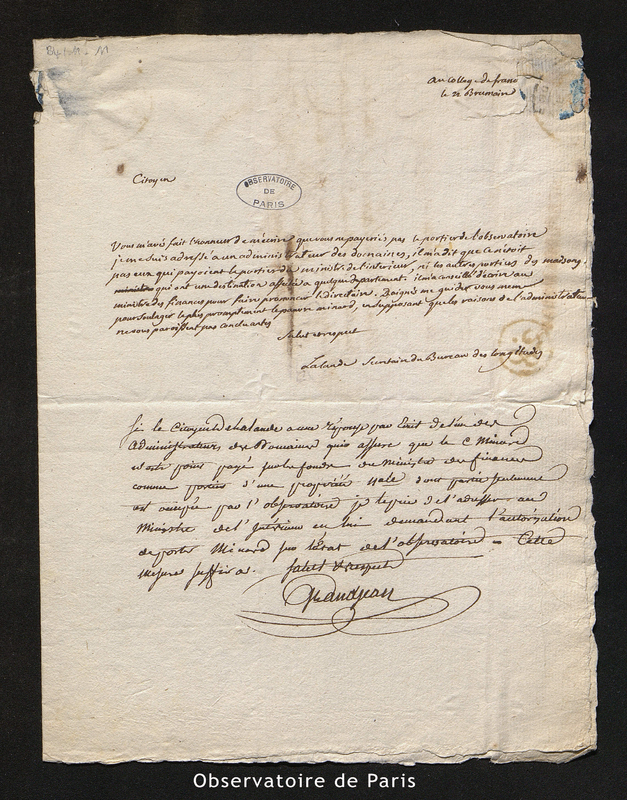 au College de france
le 21 Brumaire
Citoyen
OBSERVATOIRE
DE
PARIS
Vous m'avés fait l'honneur de m'ecrire que vous ne payeriés pas le portier de l'observatoire
je me suis adressé a un administrateur des domaines, il m'a dit que ce n'etoit
pas eux qui payoient le portier du ministre de l'interieur, ni les autres portiers des maisons
qui ont une destination affectée a quelque departement. il m'a conseillé d'ecrire au
ministre des finances pour faire prononcer le directoire. Daignés me guider vous meme
pour soulager le plus promptement le pauvre minard, en supposant que les raisons de l'administrateur
ne vous paroissent pas concluantes
Salut et respect
Lalande Secretaire du Bureau des longitudes
Si le Citoyen Delalande a une réponse par Ecrit de l'un des
administrateurs des Domaines qui assure que le C. Minard
n'est point payé sur les fonds du Ministre des finances
comme portier d'une propriété nale dont partie seulement
est occupée par l'observatoire je le prie de l'adresser au
Ministre de l'Interieur en lui demandant l'autorisation
de porter Minard sur l'état de l'observatoire = Cette
mesure suffira. salut & respect
Grandjean
Observatoire de Paris